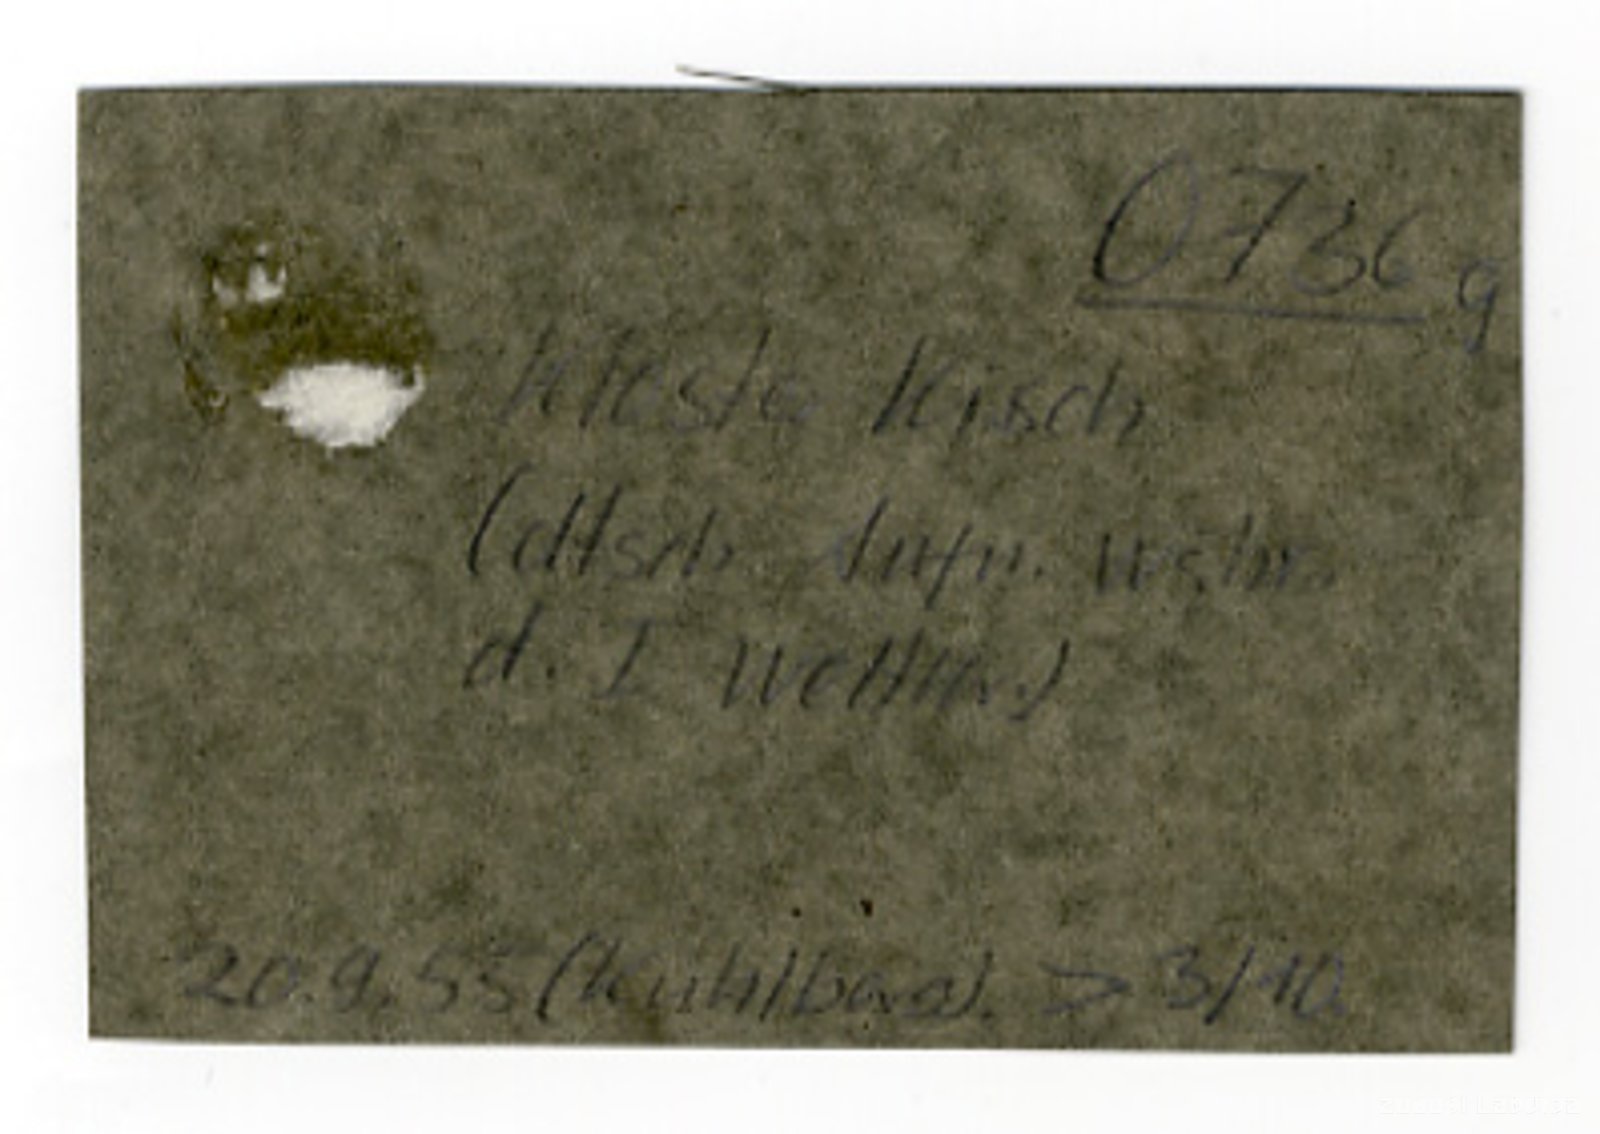 0736 g
Kleste Kisch
(dtsch Aufn.
d. I Weltkr.)
20.9.55 (Kuhlbars). > 3/10.